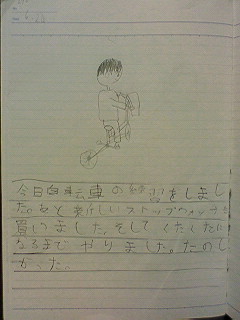 今日自転車の練習をしまし
た。あと新しいストップウォッチを
買いました。そしてくたくたに
なるまでやりました。たのし
かった